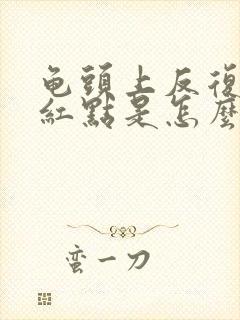 龟頭上反復
紅點是怎麼
蛮一刀